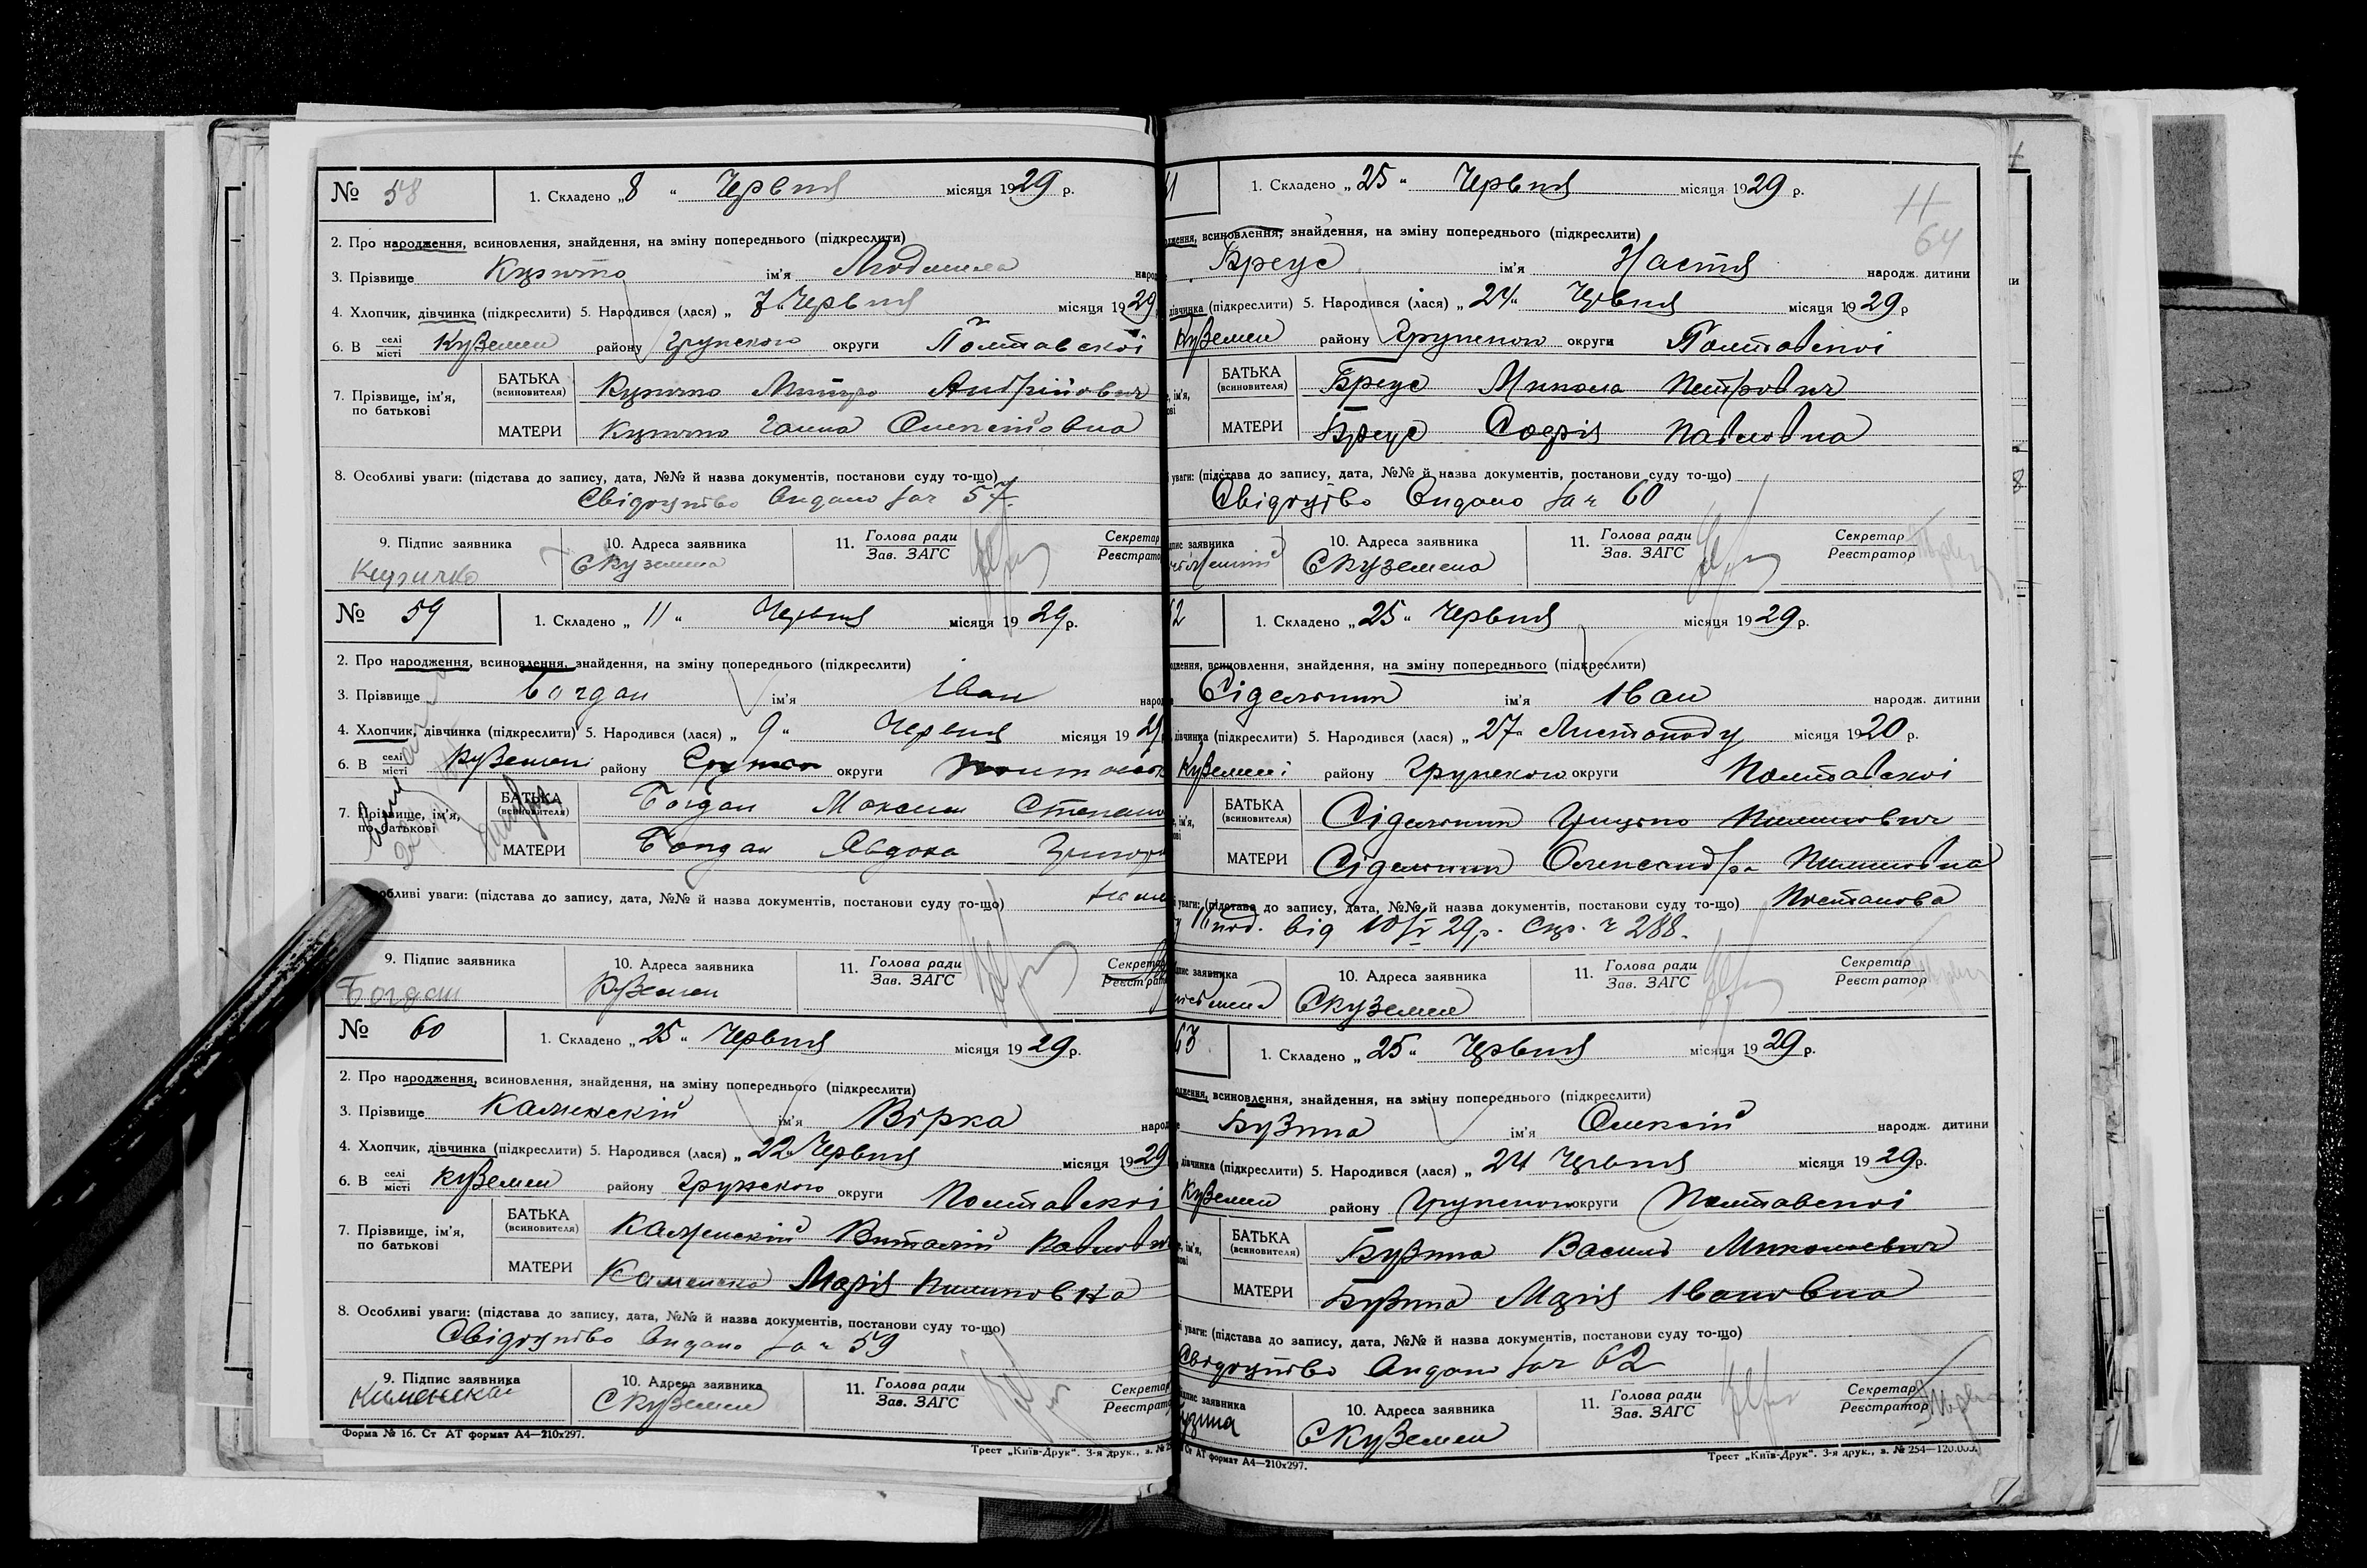 № 58
1. Складено „8“ Червня місяця 1929 р.
2. Про народження, всиновлення, знайдення, на зміну попереднього (підкреслити)
3. Прізвище ім'я Людмила народ
4. Хлопчик, дівчинка (підкреслити) 5. Народився (лася) „7“ Червня місяця 1929
6. В селі місті Куземен району Грунского округи Полтавскоі
7. Прізвище, ім'я, по батькові
БАТЬКА (всиновителя) Андрійович
МАТЕРИ Ганна
8. Особливі уваги: (підстава до запису, дата, №№ й назва документів, постанови суду то-що)
Свідоцтво видано за ч 57
9. Підпис заявника
10. Адреса заявника
11. Голова ради Зав. ЗАГС
Секретар Реєстрато
№ 59
1. Складено „11“ Червня місяця 1929 р.
2. Про народження, всиновлення, знайдення, на зміну попереднього (підкреслити)
3. Прізвище Богдан ім'я Іван народ
4. Хлопчик, дівчинка (підкреслити) 5. Народився (лася) „9“ Червня місяця 1929
6. В селі місті Куземені району округи
7. Прізвище, ім'я, по батькові
БАТЬКА (всиновителя) Богдан Максим Степано
МАТЕРИ Богдан Явдоха
собливі уваги: (підстава до запису, дата, №№ й назва документів, постанови суду то-що)
9. Підпис заявника Богдан
10. Адреса заявника Куземен
11. Голова ради Зав. ЗАГС
Секретар Реєстрат
№ 60
1. Складено „25“ Червня місяця 1929 р.
2. Про народження, всиновлення, знайдення, на зміну попереднього (підкреслити)
3. Прізвище Каменскій ім'я Вірка народ
4. Хлопчик, дівчинка (підкреслити) 5. Народився (лася) „22“ Червня місяця 1929
6. В селі місті Куземен району Грунского округи Полтавскоі
7. Прізвище, ім'я, по батькові
БАТЬКА (всиновителя) Каменскій Виталій Павлови
МАТЕРИ Каменска Марія Пилиповна
8. Особливі уваги: (підстава до запису, дата, №№ й назва документів, постанови суду то-що)
Свідоцтво видано за ч 59
9. Підпис заявника
10. Адреса заявника С Куземен
11. Голова ради Зав. ЗАГС
Секретар Реєстрато
Форма № 16. Ст АТ формат А4—210х297.
Трест „Київ-Друк“. 3-я друк., з. № 2
1. Складено „25“ Червня місяця 1929 р.
64
дження, всиновлення, знайдення, на зміну попереднього (підкреслити)
Бреус ім'я Настя народж. дитини
дівчинка (підкреслити) 5. Народився (лася) „24“ Червня місяця 1929 р
Куземен району Грунского округи Полтавскоі
БАТЬКА (всиновителя) Бреус Микола Петрович
МАТЕРИ Бреус Софія Павловна
уваги: (підстава до запису, дата, №№ й назва документів, постанови суду то-що)
Свідоцтво видано за ч 60
пис заявника
10. Адреса заявника
11. Голова ради Зав. ЗАГС
Секретар Реєстратор
62
1. Складено „25“ Червня місяця 1929 р.
дження, всиновлення, знайдення, на зміну попереднього (підкреслити)
Сідельник ім'я Іван народж. дитини
дівчинка (підкреслити) 5. Народився (лася) „27“ Листопаду місяця 1920 р.
Куземені району Грунского округи Полтавскоі
БАТЬКА (всиновителя) Сідельник Грицько Пилипович
МАТЕРИ Сідельник Олександра Пилиповна
уваги: (підстава до запису, дата, №№ й назва документів, постанови суду то-що) Постанова
від 10/V 29р. Спр. ч 288.
пис заявника
10. Адреса заявника С Куземен
11. Голова ради Зав. ЗАГС
Секретар Реєстратор
63
1. Складено „25“ Червня місяця 1929 р.
дження, всиновлення, знайдення, на зміну попереднього (підкреслити)
Бузина ім'я Олексій народж. дитини
дівчинка (підкреслити) 5. Народився (лася) „24 Червня місяця 1929 р.
Куземен району Грунского округи Полтавскоі
БАТЬКА (всиновителя) Бузина Василь Миколаєвич
МАТЕРИ Бузина Марія Івановна
уваги: (підстава до запису, дата, №№ й назва документів, постанови суду то-що)
Свідоцтво видано за ч 62
пис заявника узина
10. Адреса заявника С Куземен
11. Голова ради Зав. ЗАГС
Секретар Реєстратор
Ст АТ формат А4—210х297.
Трест „Київ-Друк“. 3-я друк., з. № 254—120.000.